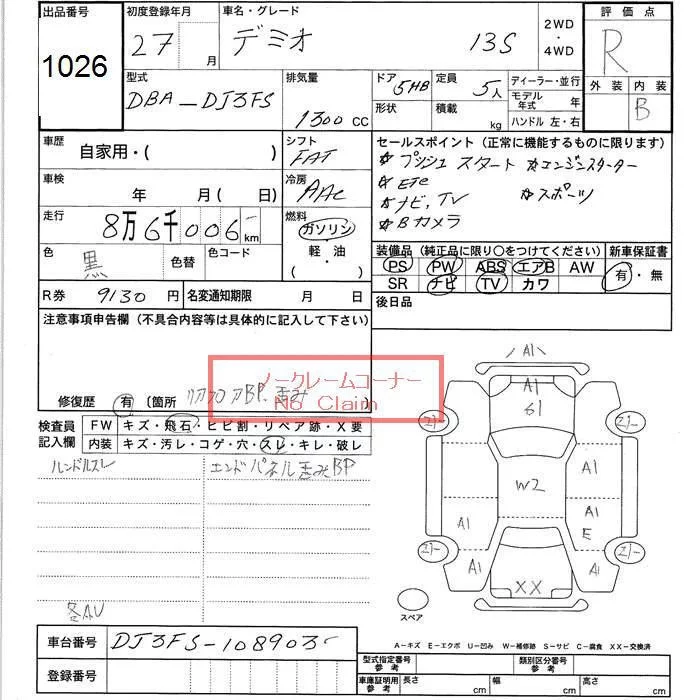 出品番号
1026
初度登録年月
27 月
車名・グレード
デミオ 13S
2WD
・
4WD
評価点
R
外装 内装
B
型式
DBA-DJ3FS
排気量
1300 CC
ドア 5HB
形状
定員 5人
積載 kg
ディーラー・並行
モデル年式 年
ハンドル 左・右
車歴
自家用・( )
シフト
FAT
車検
年 月( 日)
冷房
AAC
走行
8万6千006 km
燃料
ガソリン
軽・油
( )
色
黒
色替
色コード
R券 9130円
名変通知期限 月 日
セールスポイント (正常に機能するものに限ります)
☆ プッシュスタート ☆エンジンスターター
☆ ETC ☆スポーツ
☆ナビ,TV
☆Bカメラ
装備品 (純正品に限り○をつけてください)
新車保証書
PS PW ABS エアB AW
SR ナビ TV カワ
有・無
後日品
注意事項申告欄 (不具合内容等は具体的に記入して下さい)
ノークレームコーナー
No Claim
修復歴 有 〔箇所
検査員
記入欄
FW キズ・飛石・ヒビ割・リペア跡・X要
内装 キズ・汚レ・コゲ・穴・スレ・キレ・破レ
ハンドルスレ
エンドパネル歪みBP
各AU
A1
A1
G1
W2
A1
A1
A1
E
A1
A1
XX
スペア
A-キズ E-エクボ U-凹み W-補修跡 S-サビ C-腐食 XX-交換済
車台番号 DJ3FS-108903
登録番号
型式指定番号
参考
類別区分番号
参考
車庫証明用
参考
長さ cm
幅 cm
高さ cm